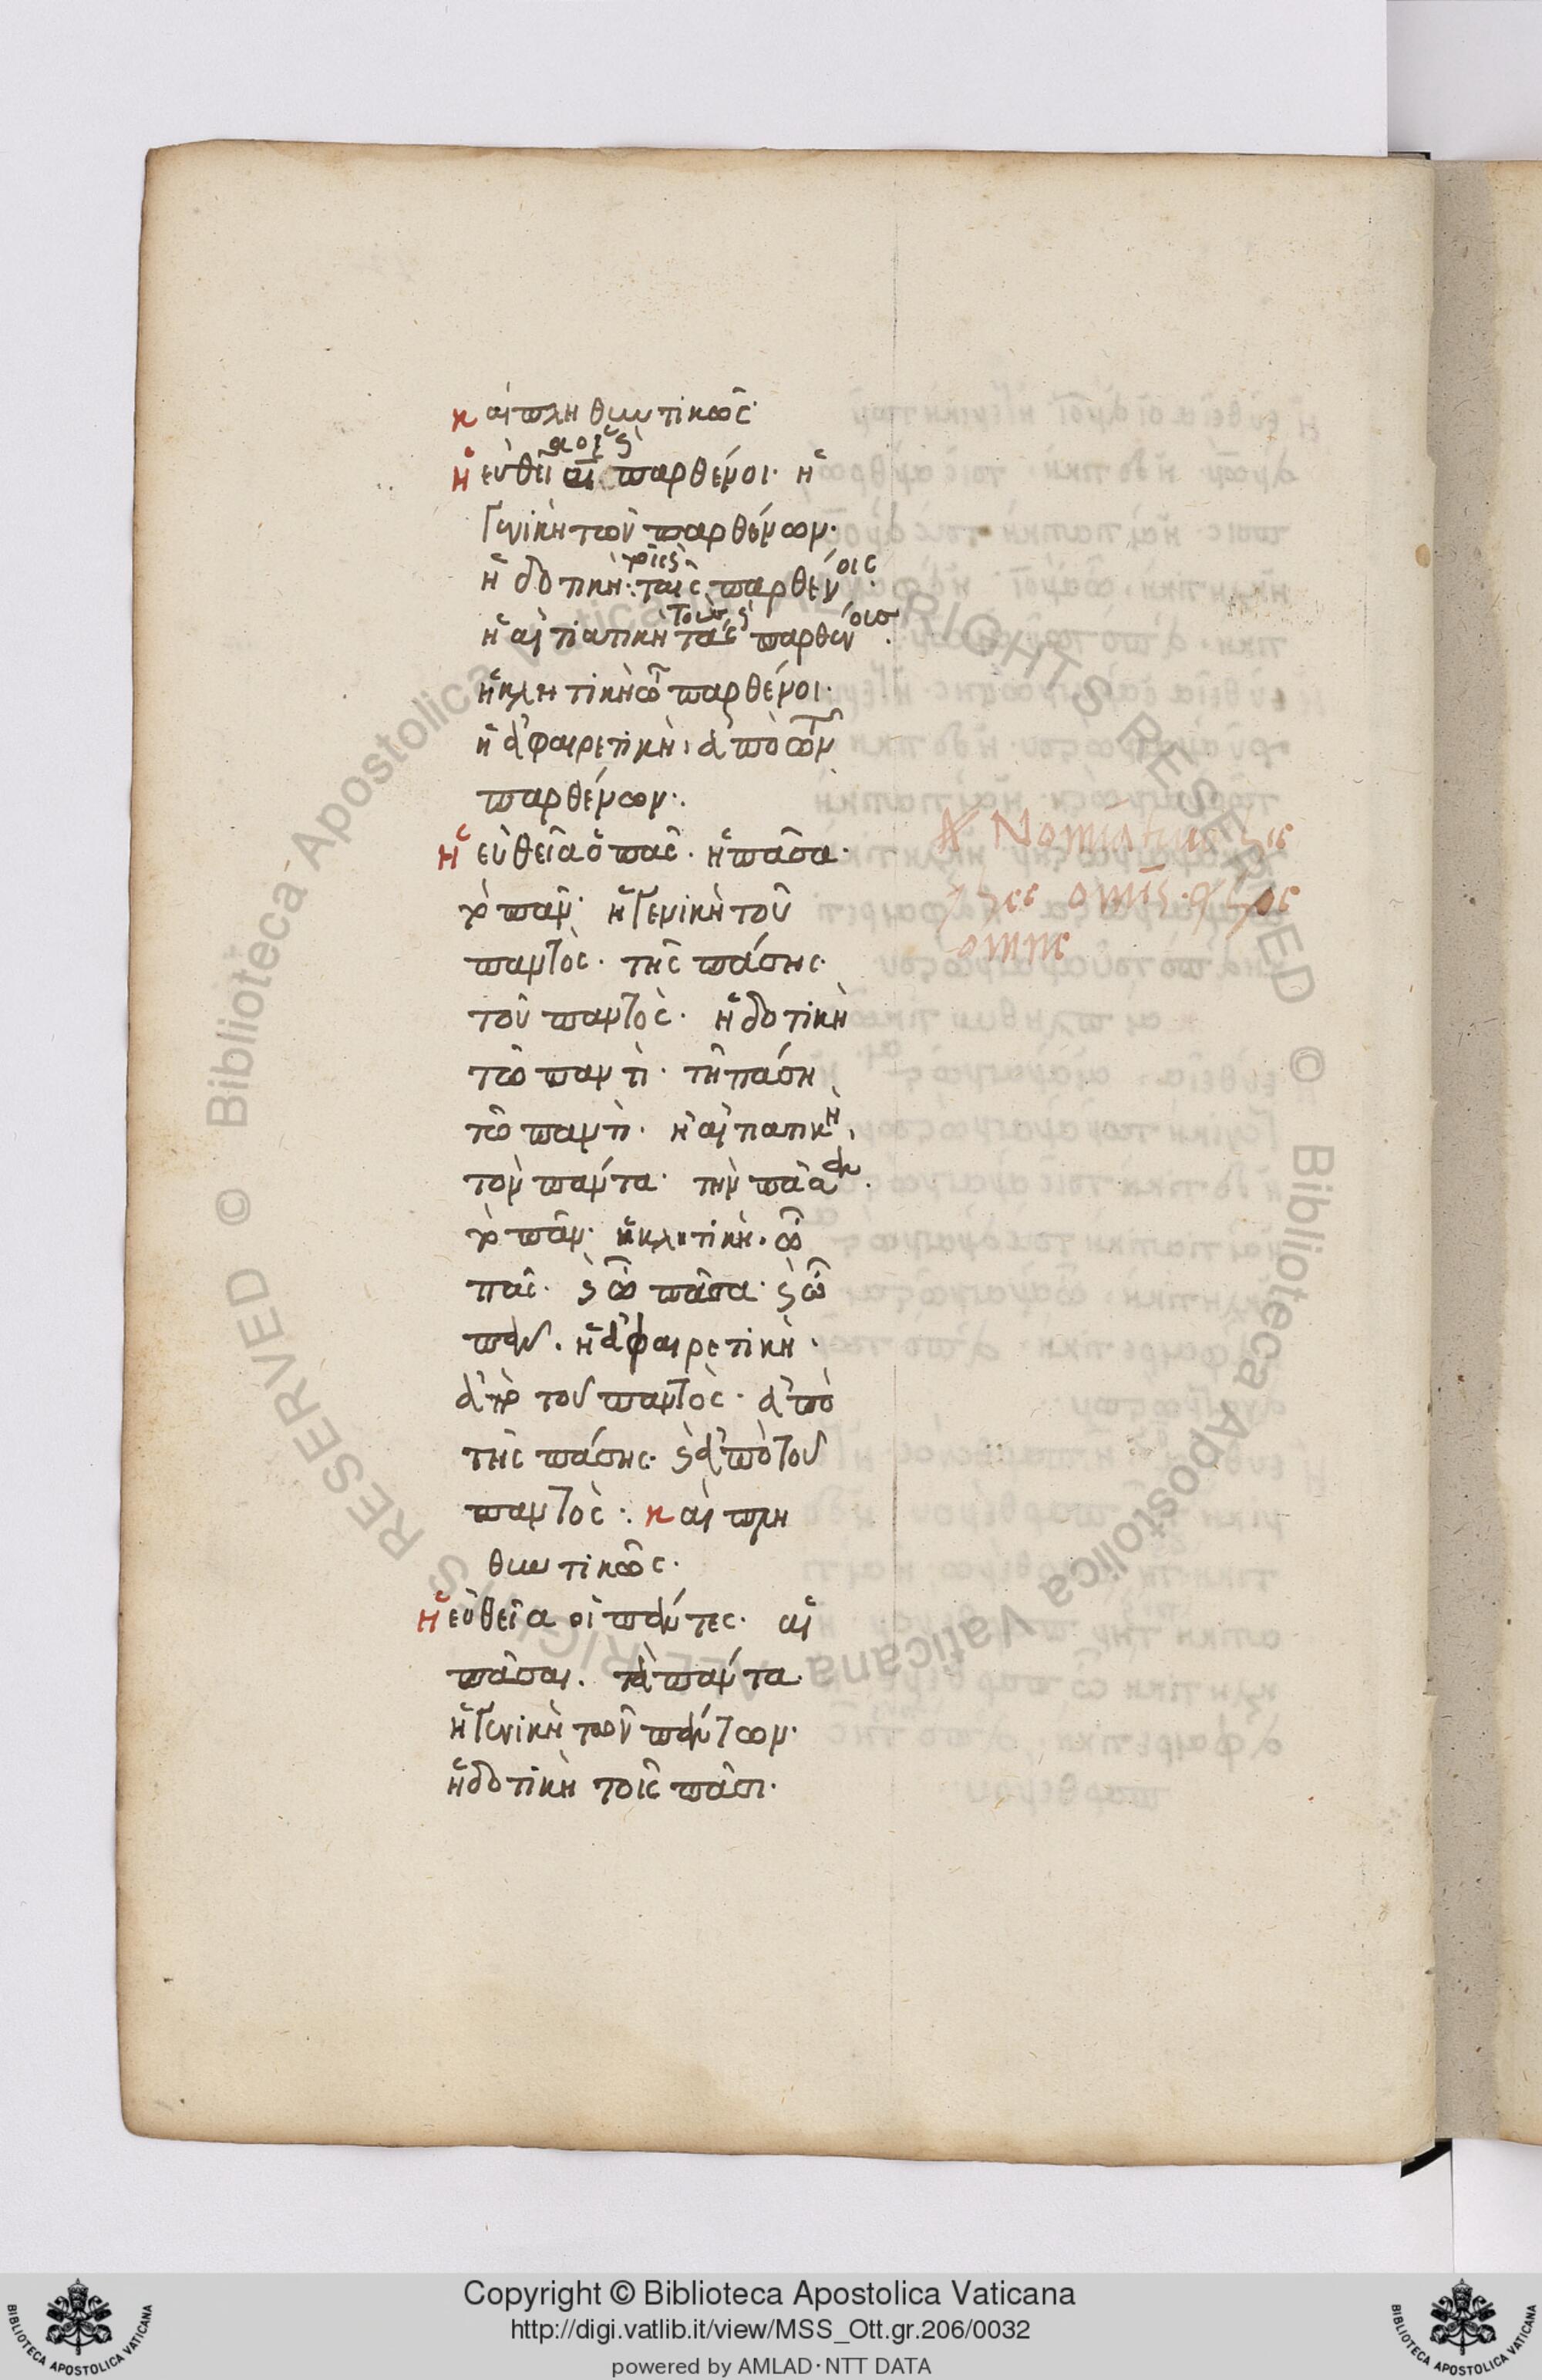 και πληθυντικῶς·
ἡ εὐθεῖα οἱ καὶ αἱ παρθένοι· ἡ
γενικὴ τῶν παρθένων·
ἡ δοτικὴ· τοῖς καὶ ταῖς παρθένοις·
ἡ αἰτιατικὴ τοὺς καὶ τὰς παρθένους.
ἡ κλητικὴ ὦ παρθένοι·
ἡ ἀφαιρετικὴ, ἀπὸ τῶν
παρθένων·.
ἡ εὐθεῖα ὁ πᾶς. ἡ πᾶσα·
τὸ πᾶν· ἡ γενικὴ τοῦ
παντὸς. τῆς πάσης·
τοῦ παντὸς. ἡ δοτικὴ
τῶ παντὶ· τῆ πάση
τῶ παντὶ. ἡ αἰτιατικὴ,
τὸν πάντα· τὴν πᾶσαν.
τὸ πᾶν· ἡ κλητικὴ. ὦ
πᾶς. καὶ ὦ πᾶσα· καὶ ὦ
πᾶν. ἡ ἀφαιρετικὴ.
ἀπὸ τοῦ παντὸς. ἀπὸ
τῆς πάσης· καὶ ἀπὸ τοῦ
παντὸς·. καὶ πλη
θυντικῶς.
ἡ εὐθεῖα οἱ πάντες. αἱ
πᾶσαι. τὰ πάντα·
ἡ γενικὴ τῶν πάντων·
ἡ δοτικὴ τοῖς πᾶσι.
omnis
Copyright © Biblioteca Apostolica Vaticana
http://digi.vatlib.it/view/MSS_Ott.gr.206/0032
powered by AMLAD·NTT DATA